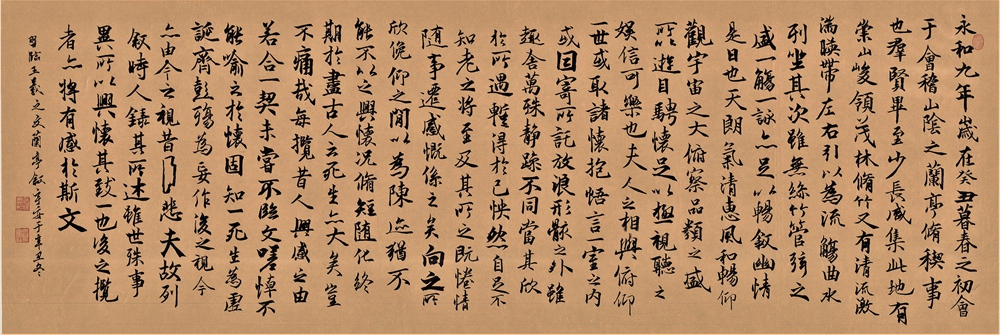 永和九年歲在癸丑暮春之初會
于會稽山陰之蘭亭脩稧事
也羣賢畢至少長咸集此地有
崇山峻領茂林脩竹又有清流激
湍暎帶左右引以為流觴曲水
列坐其次雖無絲竹管弦之
盛一觴一詠亦足以暢敘幽情
是日也天朗氣清惠風和暢仰
觀宇宙之大俯察品類之盛
所以遊目騁懷足以極視聽之
娛信可樂也夫人之相與俯仰
一世或取諸懷抱悟言一室之內
或因寄所託放浪形骸之外雖
趣舍萬殊靜躁不同當其欣
於所遇暫得於己怏然自足不
知老之將至及其所之既惓情
隨事遷感慨係之矣向之所
欣俛仰之間以為陳迹猶不
能不以之興懷況脩短隨化終
期於盡古人云死生亦大矣豈
不痛哉每攬昔人興感之由
若合一契未嘗不臨文嗟悼不
能喻之於懷固知一死生為虛
誕齊彭殤為妄作後之視今
亦由今之視昔悲夫故列
敘時人錄其所述雖世殊事
異所以興懷其致一也後之攬
者亦將有感於斯文
臨王羲之文蘭亭敘辛丑冬